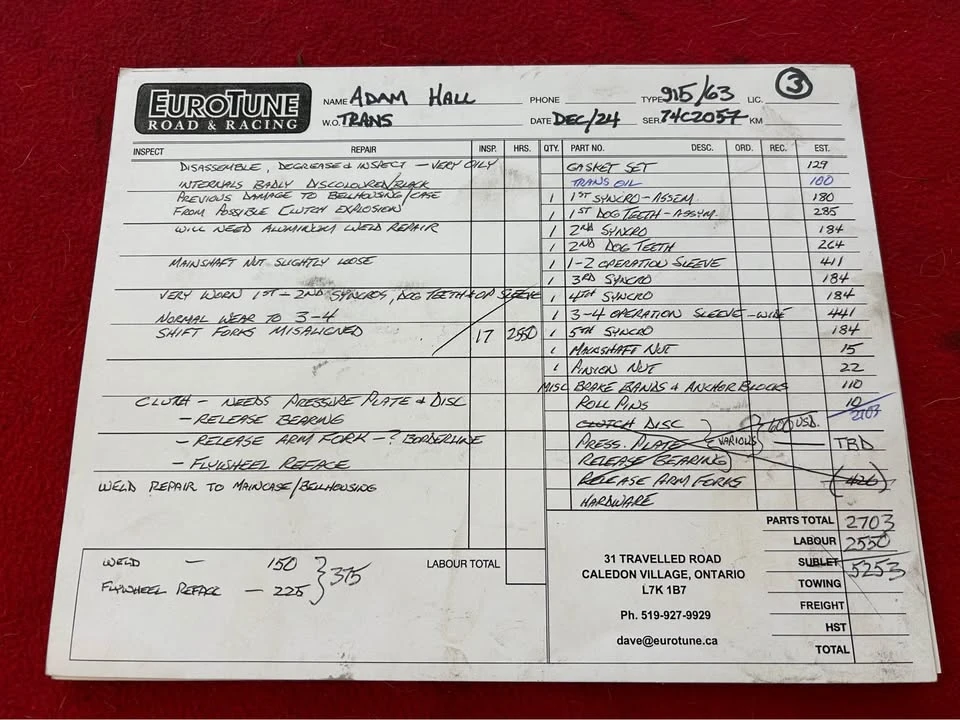 EUROTUNE
ROAD & RACING
NAME ADAM HALL PHONE TYPE 915/63 LIC. 3
W.O. TRANS DATE DEC/24 SER. 74C2057 KM
INSPECT REPAIR INSP. HRS. QTY. PART NO. DESC. ORD. REC. EST.
DISASSEMBLE, DEGREASE & INSPECT - VERY OILY
INTERNALS BADLY DISCOLOURED/BLACK
PREVIOUS DAMAGE TO BELLHOUSING/CASE
FROM POSSIBLE CLUTCH EXPLOSION
WILL NEED ALUMINUM WELD REPAIR
MAINSHAFT NUT SLIGHTLY LOOSE
VERY WORN 1ST - 2ND SYNCROS, DOG TEETH & OP SLEEVE
NORMAL WEAR TO 3-4
SHIFT FORKS MISALIGNED 17 2550
CLUTCH - NEEDS PRESSURE PLATE & DISC
- RELEASE BEARING
- RELEASE ARM FORK - ? BORDERLINE
- FLYWHEEL REFACE
WELD REPAIR TO MAINCASE/BELLHOUSING
GASKET SET 129
TRANS OIL 100
1 1ST SYNCRO - ASSEM 180
1 1ST DOG TEETH - ASSYM. 285
1 2ND SYNCRO 184
1 2ND DOG TEETH 264
1 1-2 OPERATION SLEEVE 411
1 3RD SYNCRO 184
1 4TH SYNCRO 184
1 3-4 OPERATION SLEEVE - WIDE 441
1 5TH SYNCRO 184
1 MAINSHAFT NUT 15
1 PINION NUT 22
MISC BRAKE BANDS & ANCHOR BLOCKS 110
ROLL PINS 10
2703
CLUTCH DISC 600 USD.
PRESS. PLATE (VARIOUS) TBD
RELEASE BEARING
RELEASE ARM FORKS (420)
HARDWARE
WELD - 150
FLYWHEEL REFACE - 225
375
LABOUR TOTAL
31 TRAVELLED ROAD
CALEDON VILLAGE, ONTARIO
L7K 1B7
Ph. 519-927-9929
dave@eurotune.ca
PARTS TOTAL 2703
LABOUR 2550
SUBLET 5253
TOWING
FREIGHT
HST
TOTAL